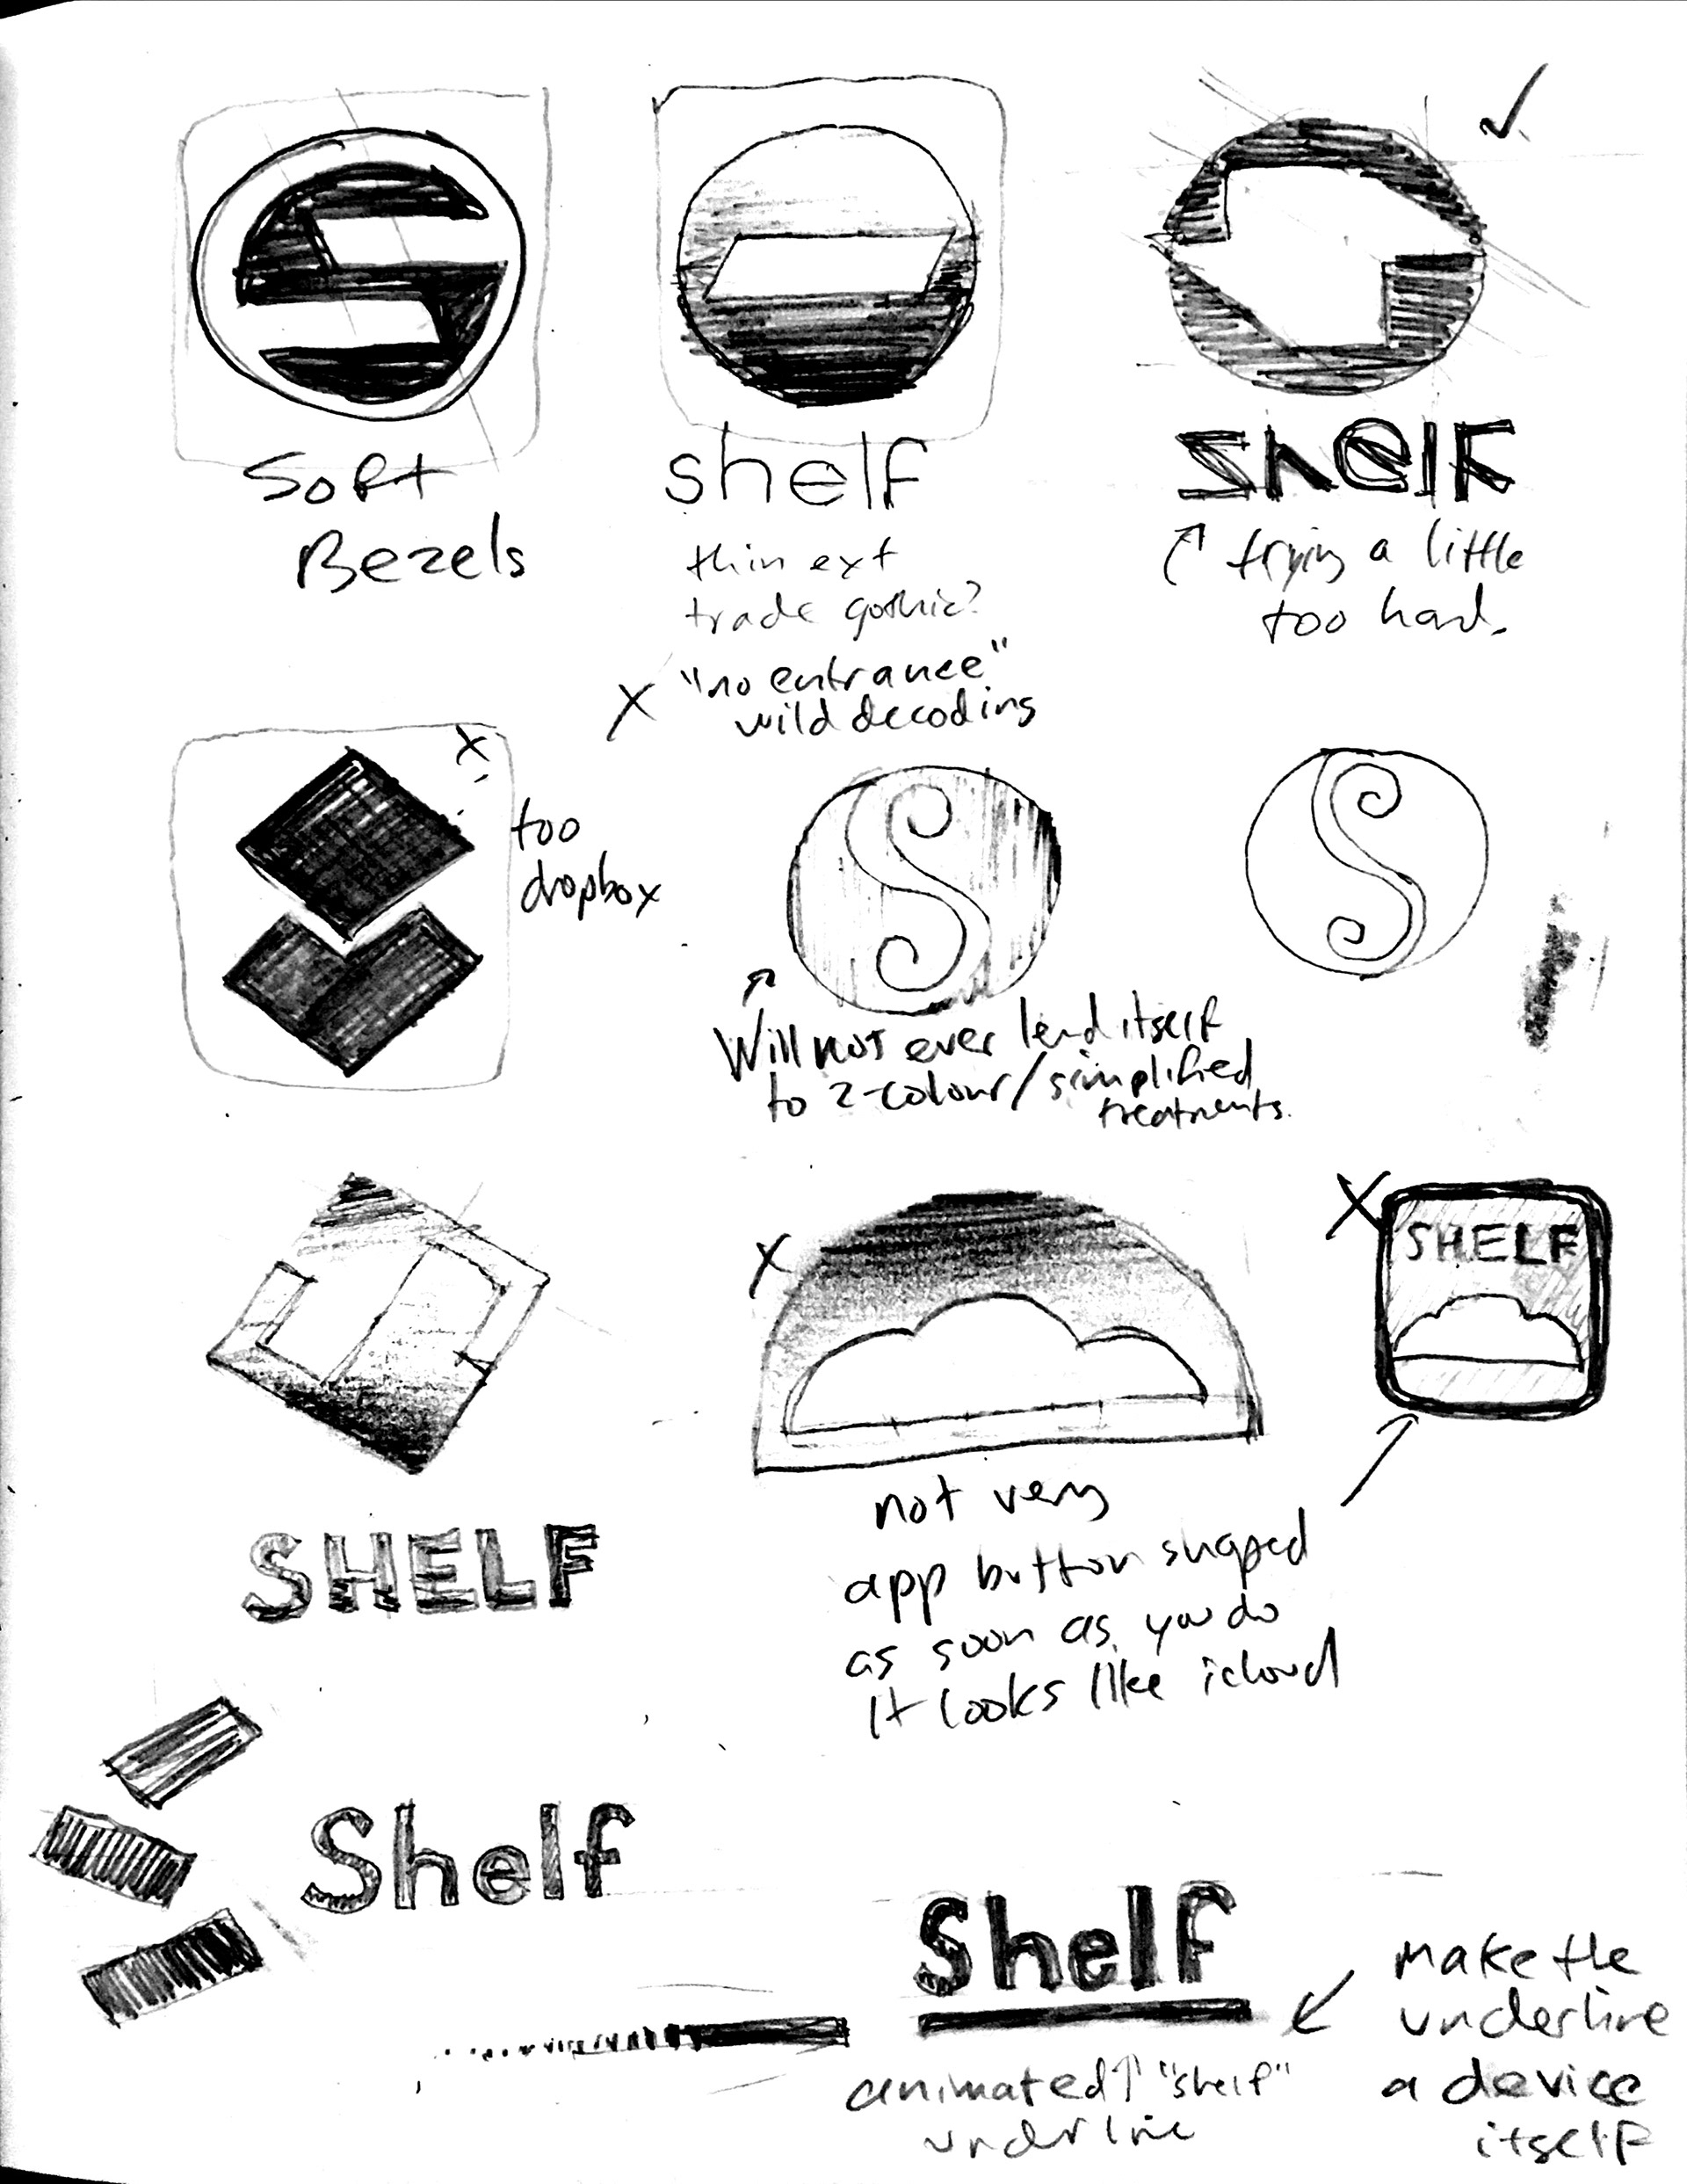 Soft
Bezels
shelf
thin ext
trade gothic?
X "no entrance"
wild decoding
✓
shelf
trying a little
too hard.
X
too
dropbox
S
Will not ever lend itself
to 2-colour/simplified
treatments.
S
SHELF
X
not very
app button shaped
as soon as you do
it looks like icloud
X
SHELF
Shelf
Shelf
animated↑ "shelf"
underline
make the
underline
a device
itself